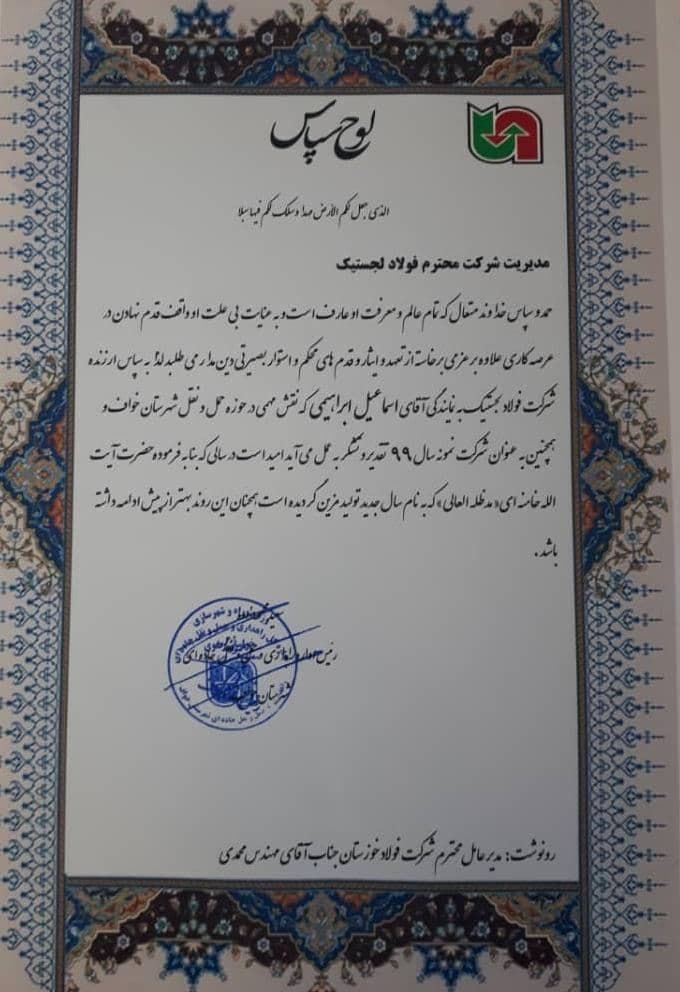 لوح سپاس
الذی جعل لکم الارض مهدا وسلک لکم فیها سبلا
مدیریت شرکت محترم فولاد لجستیک
حمد و سپاس خداوند متعال که تمام عالم و معرفت او عارف است و به عنایت بی علت او واقف قدم نهادن در
عرصه کاری علاوه بر عزمی برخاسته از تعهد و ایثار و قدم های محکم و استوار بصیرتی دین مدار می طلبد لذا به سپاس ارزنده
شرکت فولاد لجستیک به نمایندگی آقای اسماعیل ابراهیمی که نقش مهمی در حوزه حمل و نقل شهرستان خواف و
همچنین به عنوان شرکت نمونه سال ۹۹ تقدیر و تشکر به عمل می آید امید است در سالی که بنا به فرموده حضرت آیت
الله خامنه ای «مدظله العالی» که به نام سال جدید تولید مزین گردیده است همچنان این روند بهتر از پیش ادامه داشته
باشد.
رئیس اداره راهداری و حمل و نقل جاده ای
شهرستان خواف
رونوشت: مدیرعامل محترم شرکت فولاد خوزستان جناب آقای مهندس محمدی